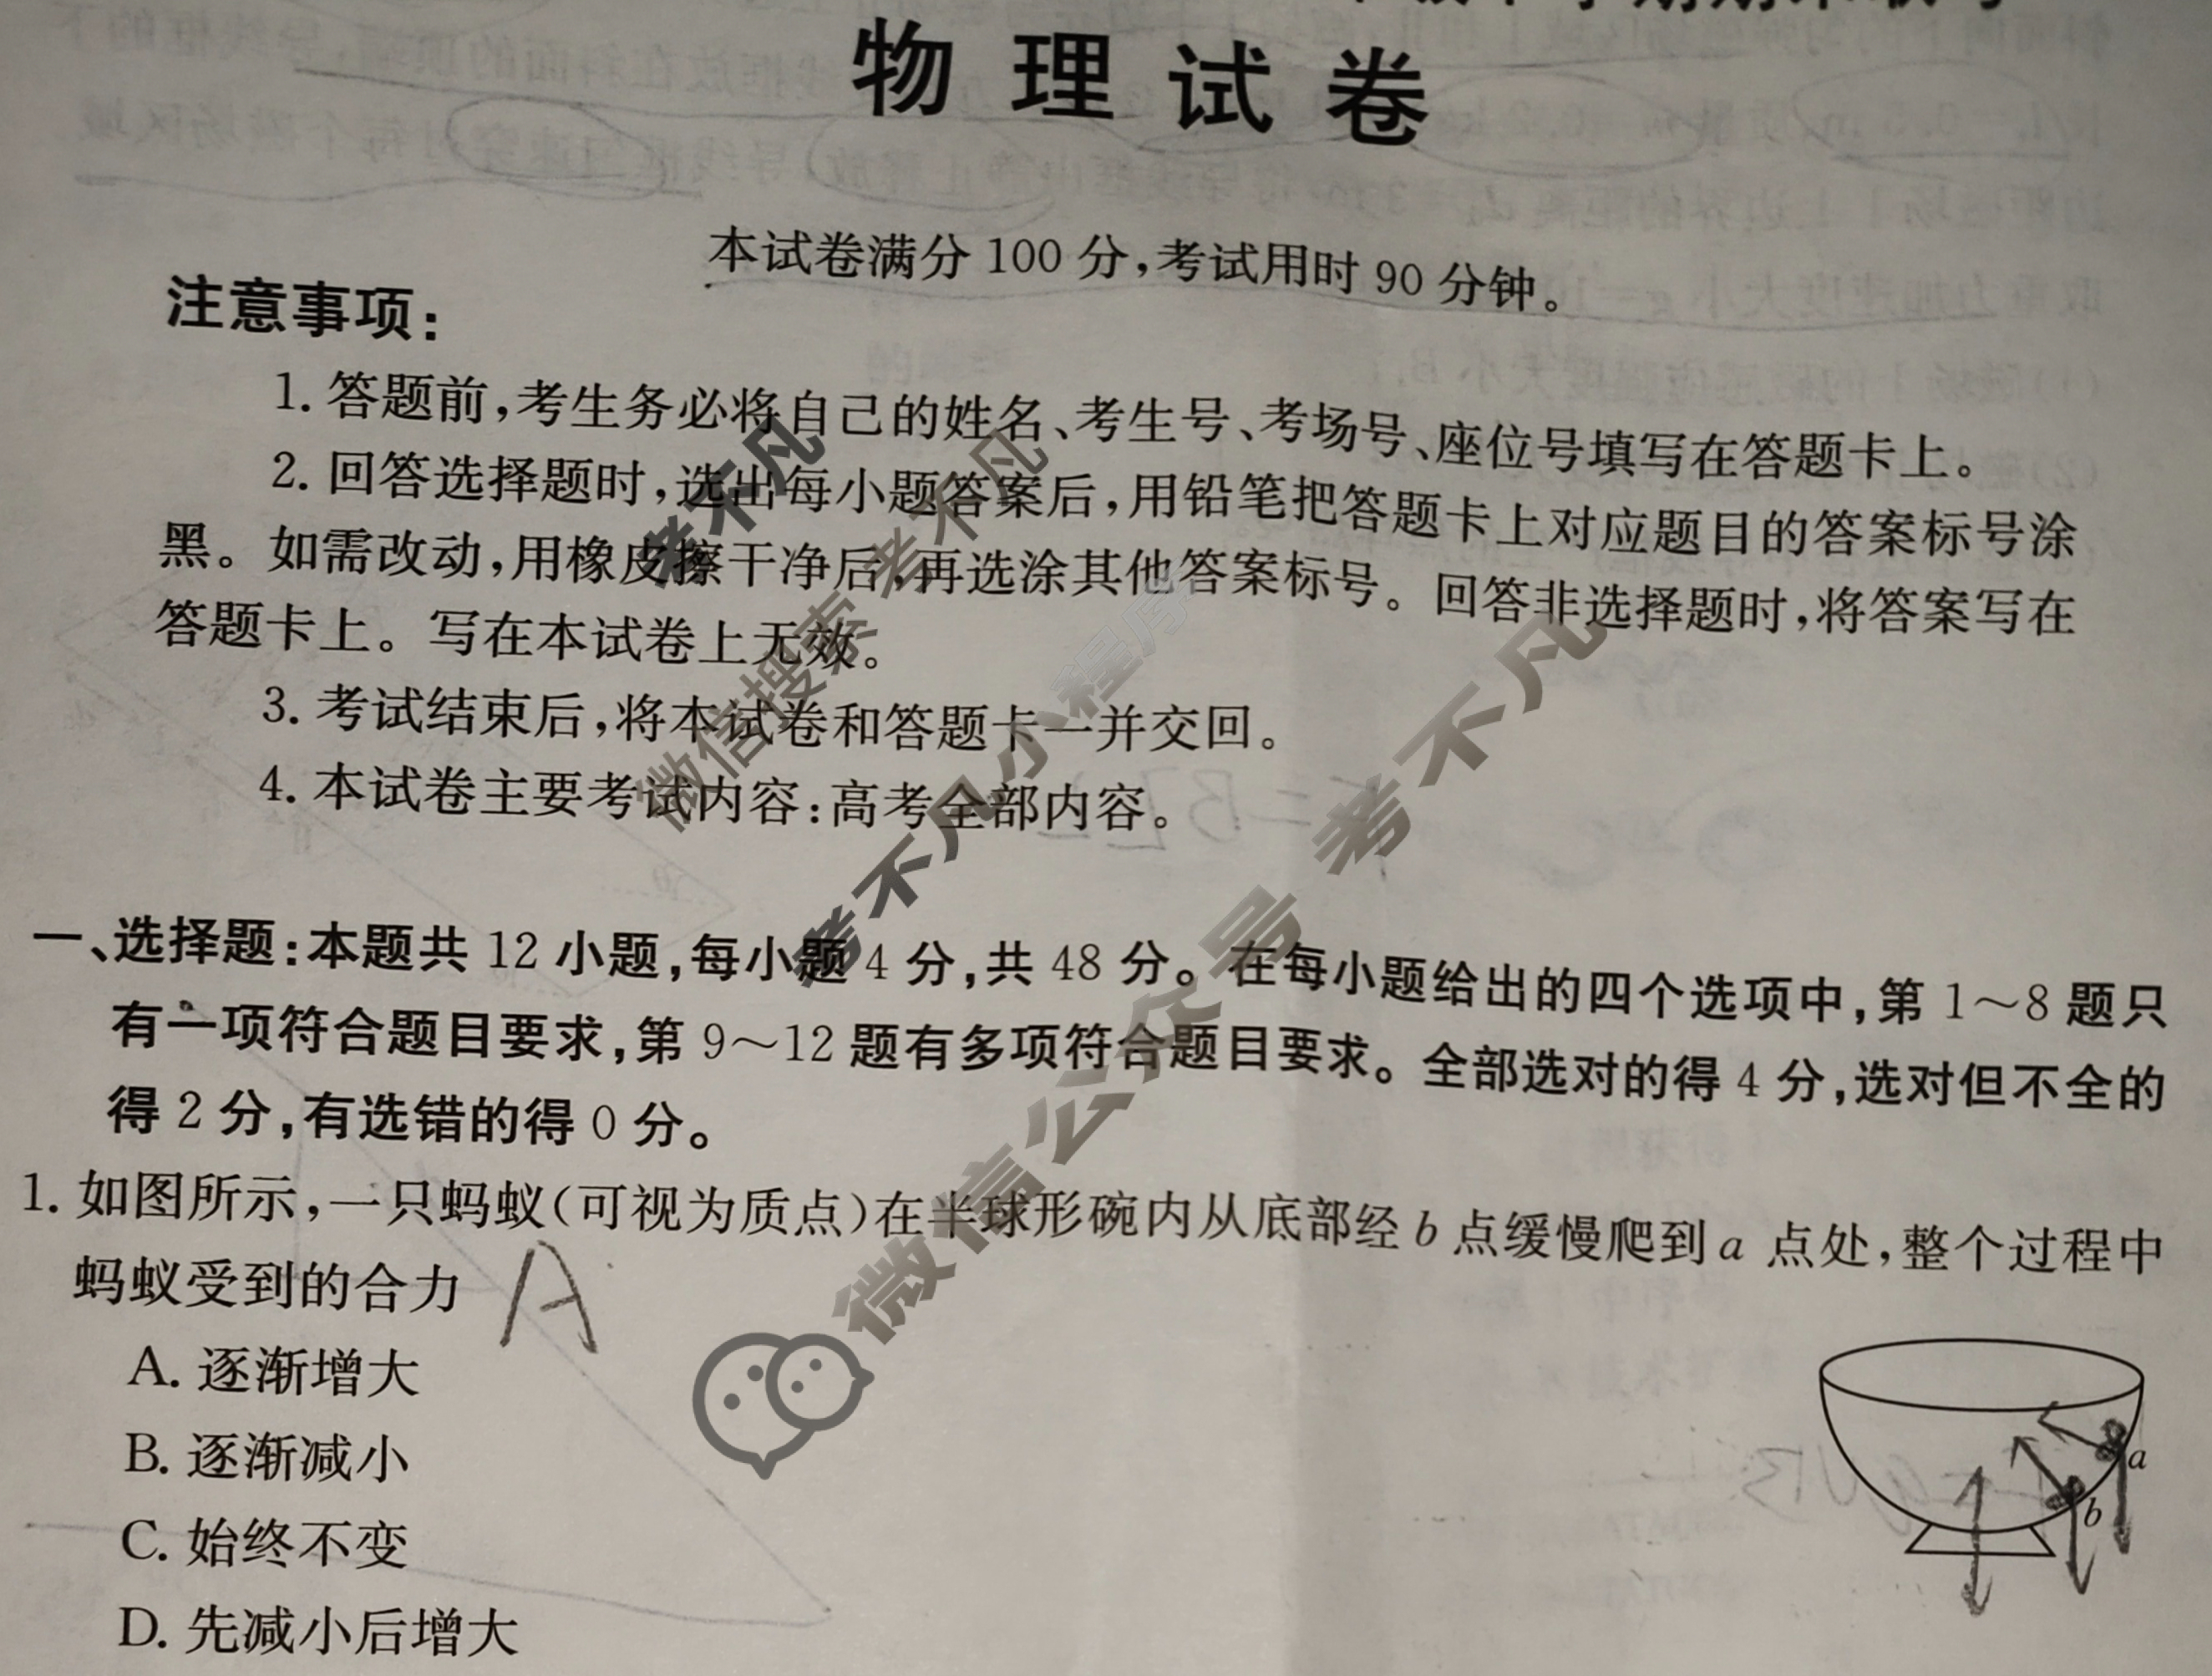 物理试卷
本试卷满分 100 分,考试用时 90 分钟。
注意事项:
1. 答题前,考生务必将自己的姓名、考生号、考场号、座位号填写在答题卡上。
2. 回答选择题时,选出每小题答案后,用铅笔把答题卡上对应题目的答案标号涂
黑。如需改动,用橡皮擦干净后,再选涂其他答案标号。回答非选择题时,将答案写在
答题卡上。写在本试卷上无效。
3. 考试结束后,将本试卷和答题卡一并交回。
4. 本试卷主要考试内容:高考全部内容。
一、选择题:本题共 12 小题,每小题 4 分,共 48 分。在每小题给出的四个选项中,第 1～8 题只
有一项符合题目要求,第 9～12 题有多项符合题目要求。全部选对的得 4 分,选对但不全的
得 2 分,有选错的得 0 分。
1. 如图所示,一只蚂蚁(可视为质点)在半球形碗内从底部经 b 点缓慢爬到 a 点处,整个过程中
蚂蚁受到的合力 A
A. 逐渐增大
B. 逐渐减小
C. 始终不变
D. 先减小后增大
a
b
考不凡
微信搜索 考不凡
考不凡小程序
微信公众号 考不凡